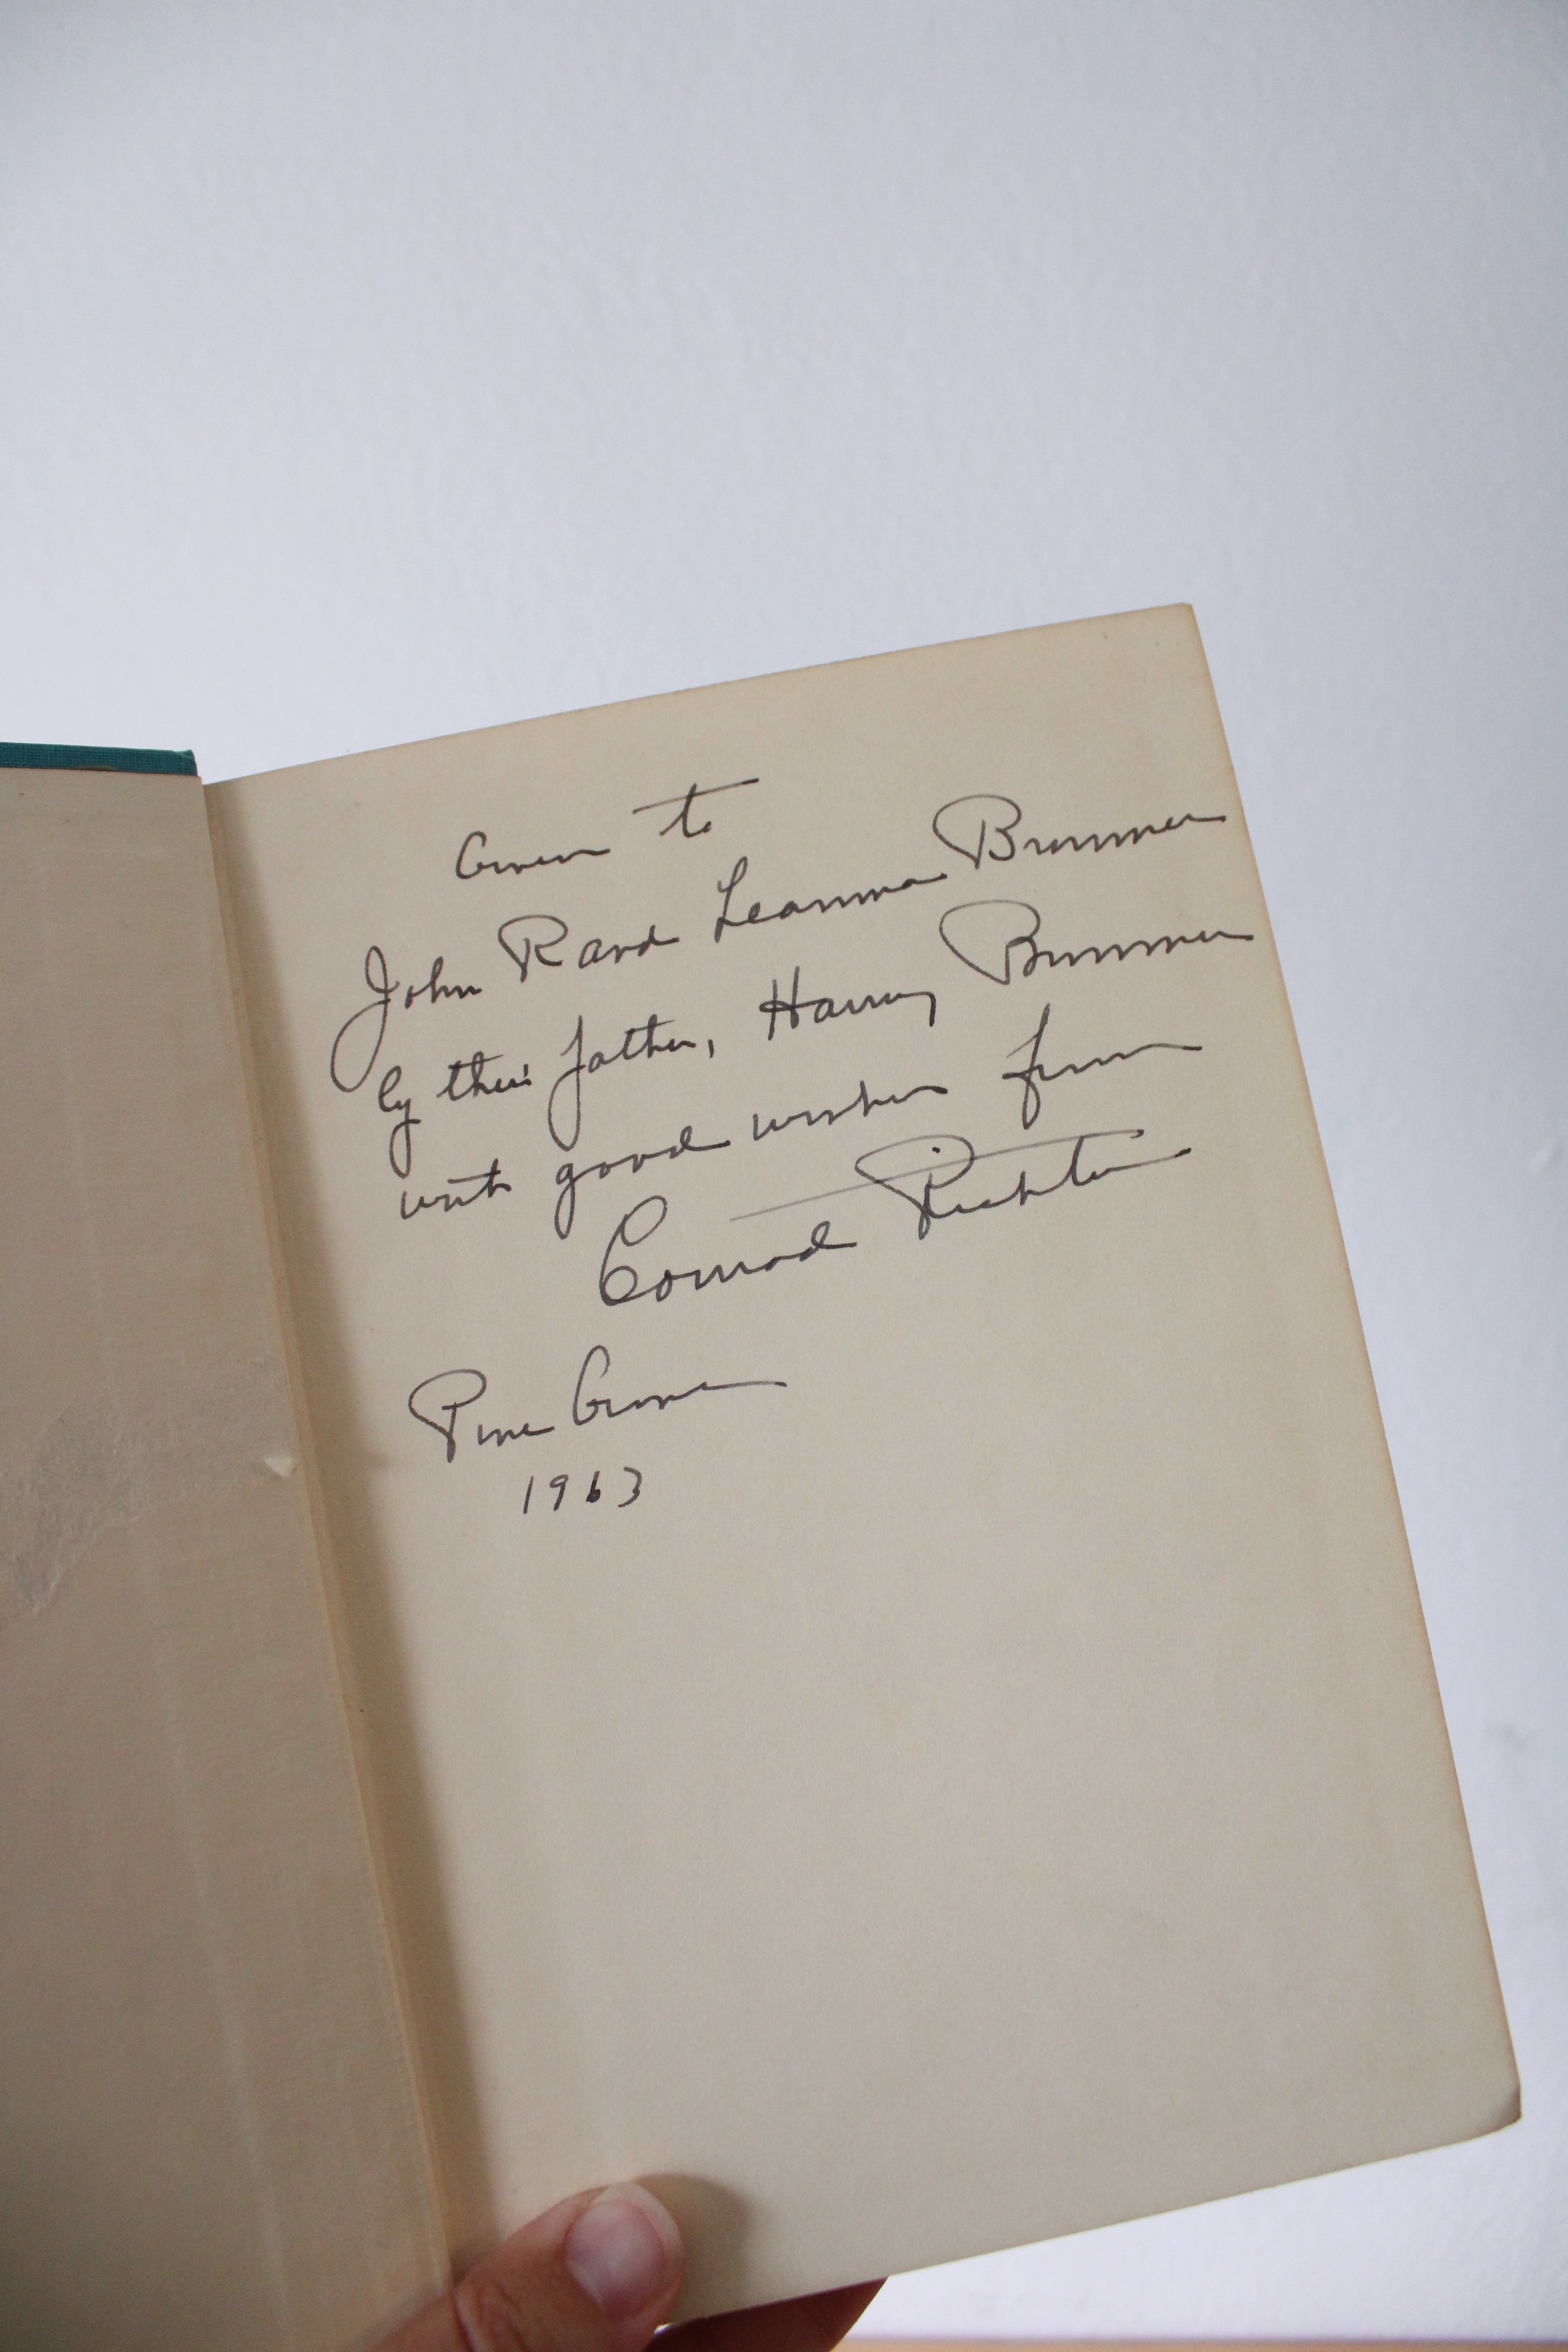 Given to
John R and Leanna Brunner
by their father, Harvey Brunner
with good wishes from
Conrad Richter
Pine Grove
1963